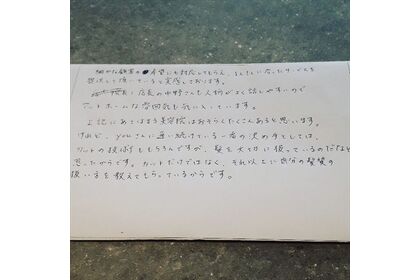 細かな顧客の希望にも対応してもらえ、その人に合ったサービスを
提供して頂いていると実感しております。
店長の中野さんも人柄がよく話しやすいので
アットホームな雰囲気も気に入っています。
上記にあてはまる美容院はおそらくたくさんあると思います。
けれど、youさんに通い続けている一番の決め手としては、
カットの技術ももちろんですが、髪を大切に扱っているのだなと
思ったからです。カットだけではなく、それ以上に自分の髪質の
扱い方を教えてもらっているからです。